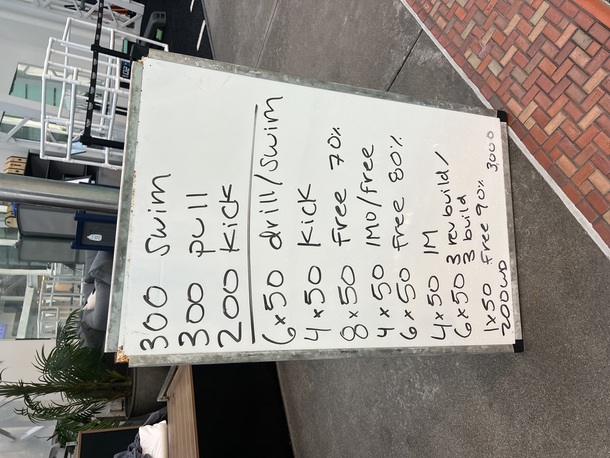 300 Swim
300 pull
200 kick
6x50 drill/swim
4x50 kick
8x50 free 70%
4x50 IMO/free
6x50 free 80%
4x50 IM
6x50 3 rev build/
3 build
1x50 free 90%
200WD 3000